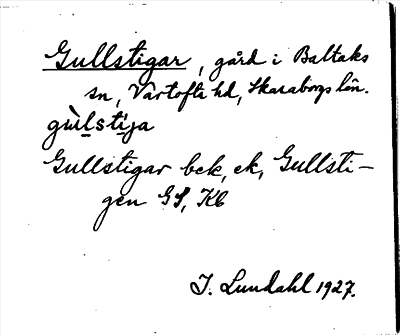 Gullstigar, gård i Baltaks
sn, Vartofta hd, Skaraborgs län.
gùlstı̣ja
Gullstigar bek, ek, Gullsti-
gen GS, Kb
I. Lundahl 1927.